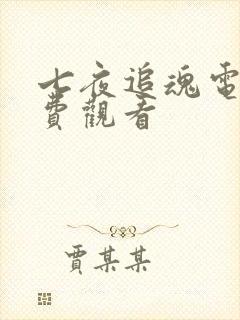 七夜追魂電
費觀看
賈某某